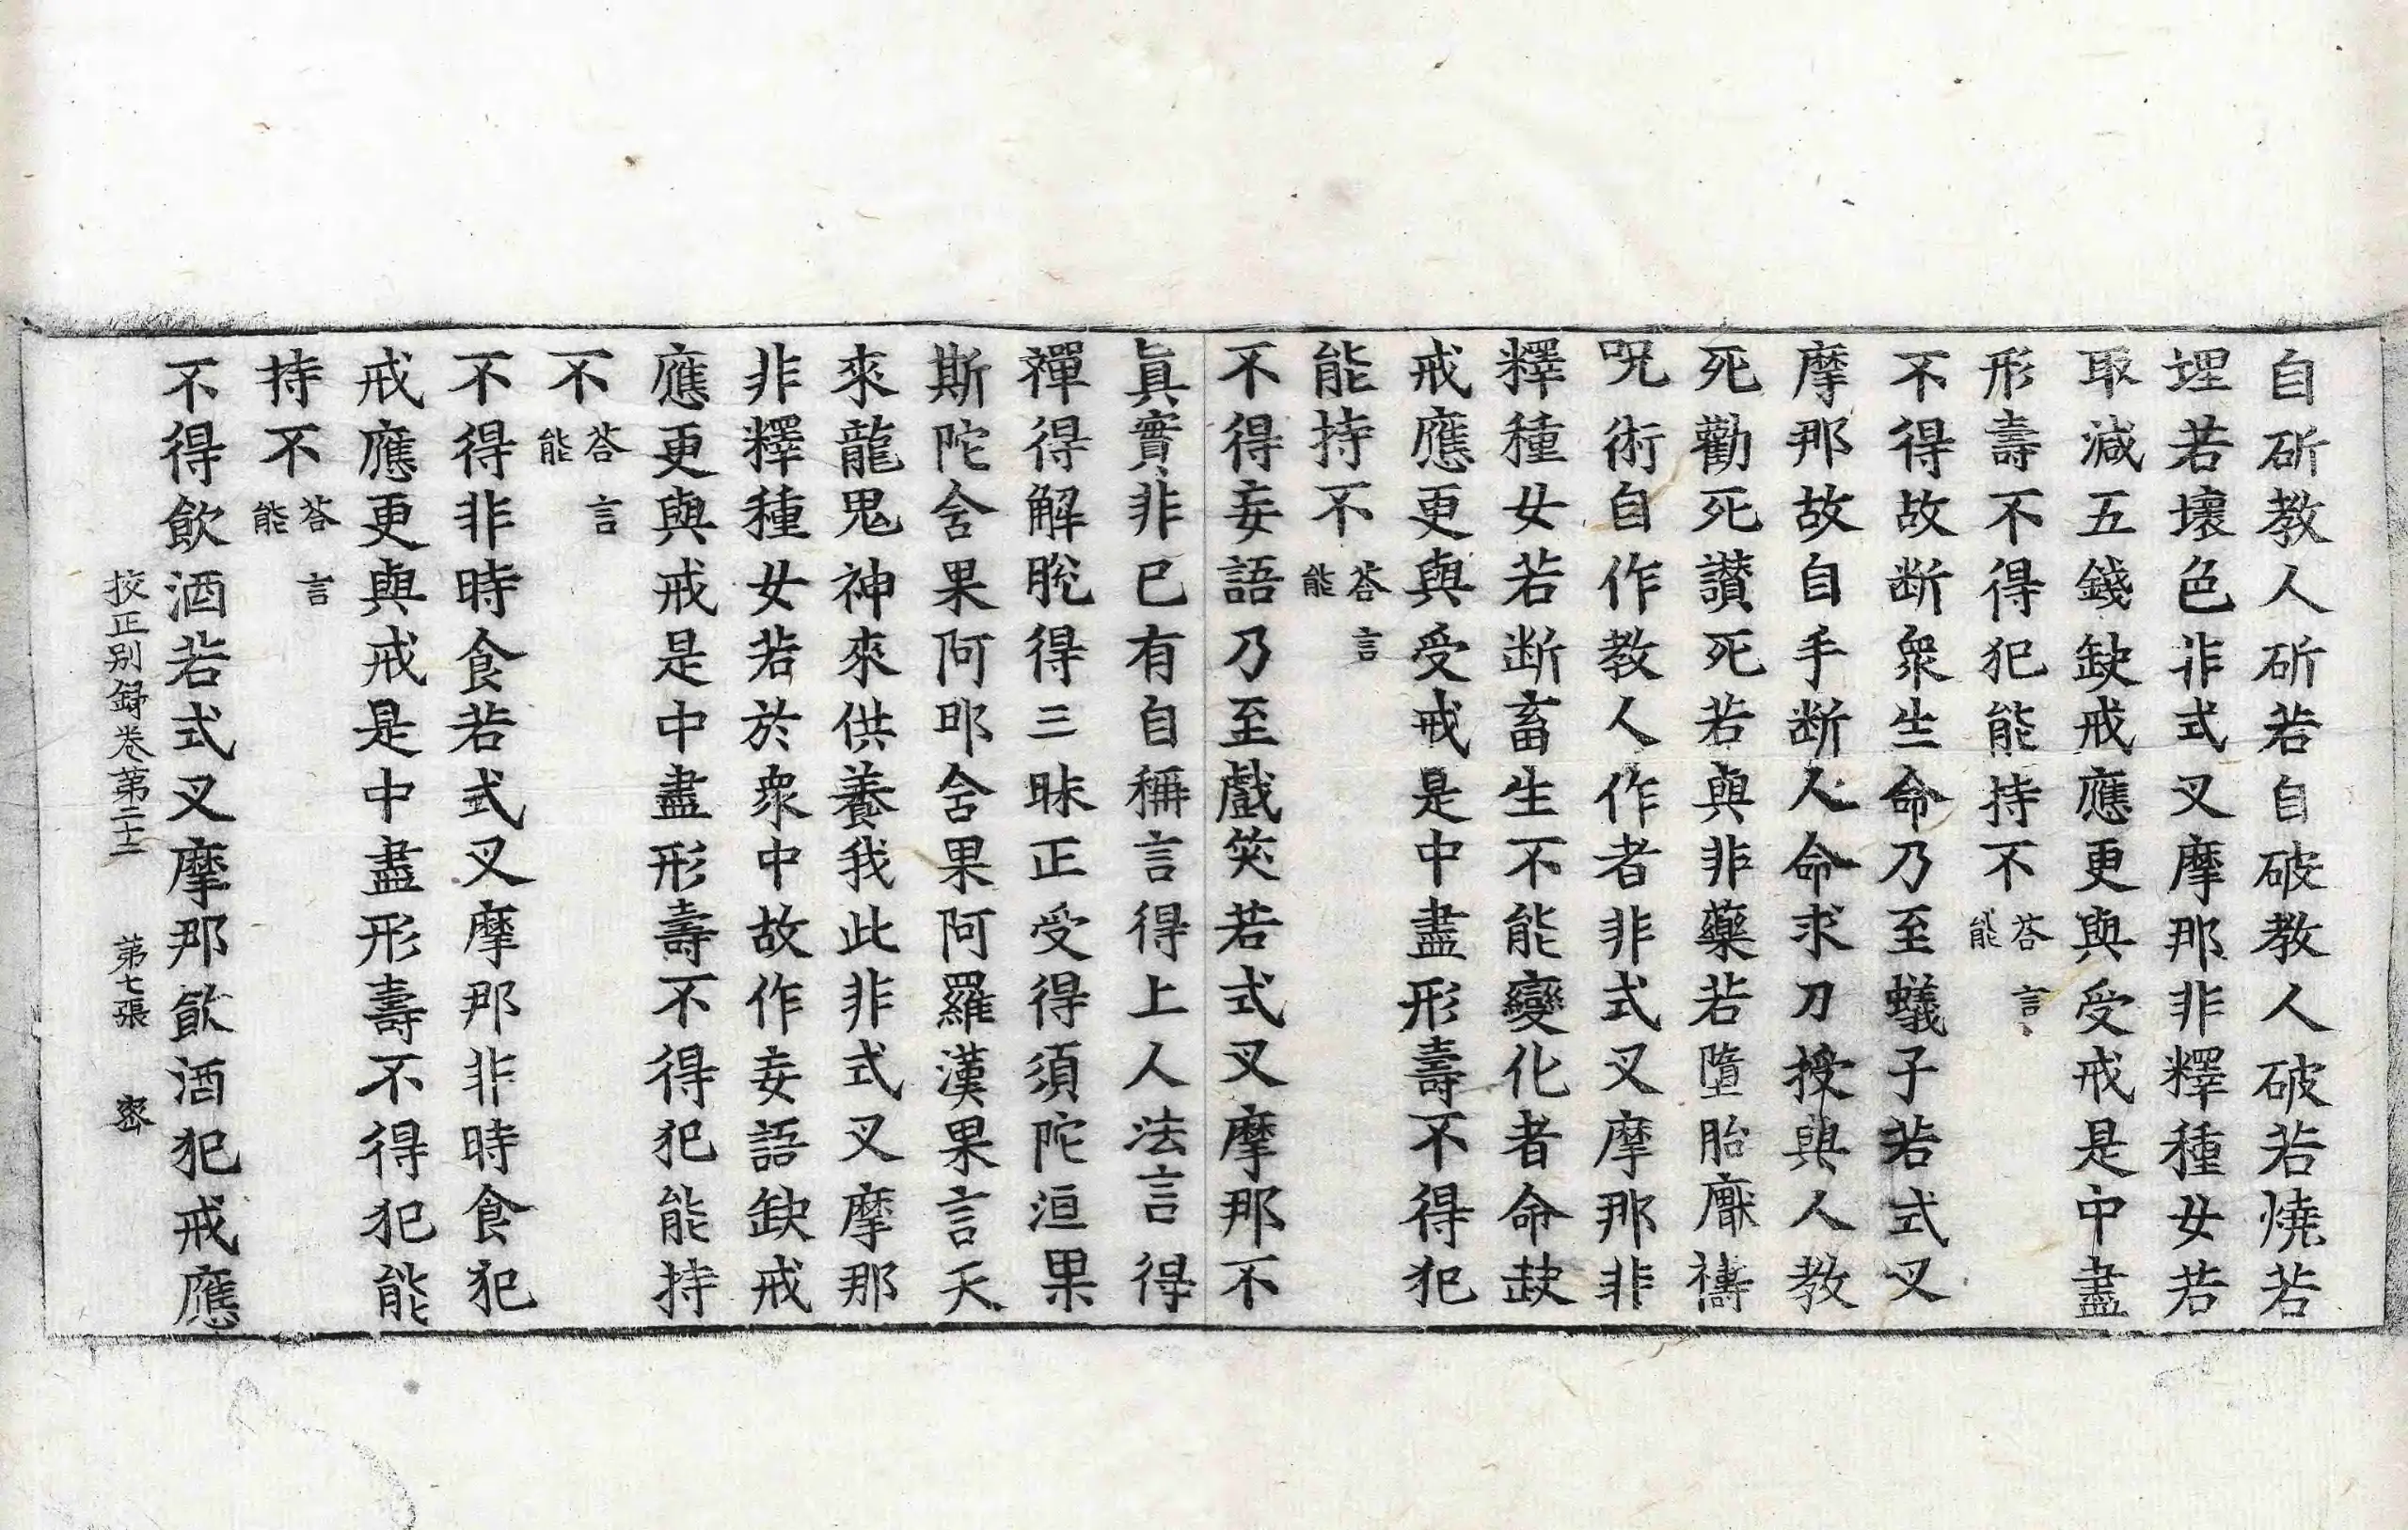 自斫教人斫若自破教人破若燒若
埋若壞色非式叉摩那非釋種女若
取減五錢缺戒應更與受戒是中盡
形壽不得犯能持不荅言能
不得故断衆生命乃至蟻子若式叉
摩那故自手断人命求刀授與人教
死勸死讃死若與非藥若墮胎㒇禱
呪術自作教人作者非式叉摩那非
釋種女若断畜生不能變化者命缺
戒應更與受戒是中盡形壽不得犯
能持不荅言能
不得妄語乃至戲笑若式叉摩那不
眞實非已有自稱言得上人法言得
禪得解脫得三昧正受得須陀洹果
斯陀舍果阿𨙻舍果阿羅漢果言天
來龍鬼神來供養我此非式叉摩那
非釋種女若於衆中故作妄語缺戒
應更與戒是中盡形壽不得犯能持
不荅言能
不得非時食若式叉摩那非時食犯
戒應更與戒是中盡形壽不得犯能
持不荅言能
不得飲酒若式叉摩那飲酒犯戒應
挍正別録卷第二十一 第七張 密